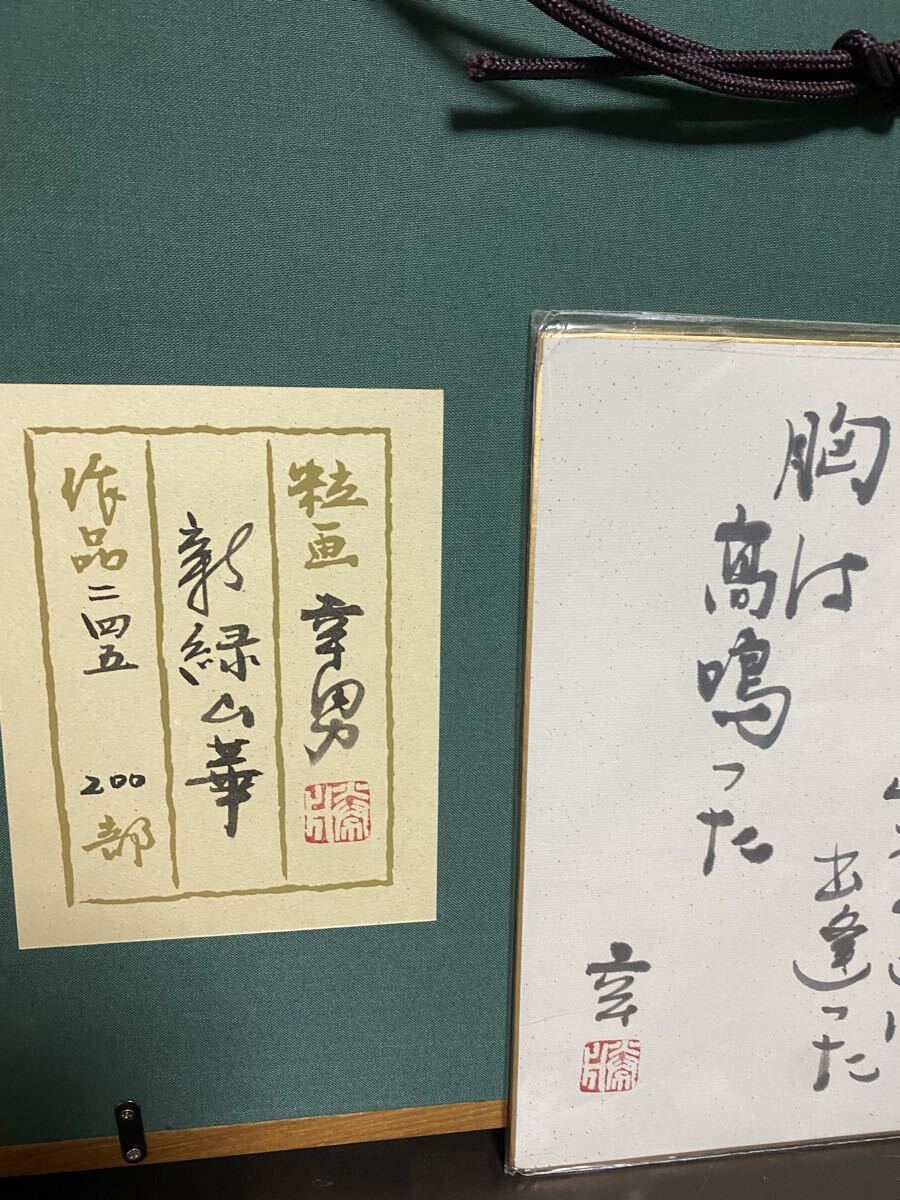 粒画 幸男
新緑山華
作品二四五 200部
出逢った
胸は
高鳴った
幸